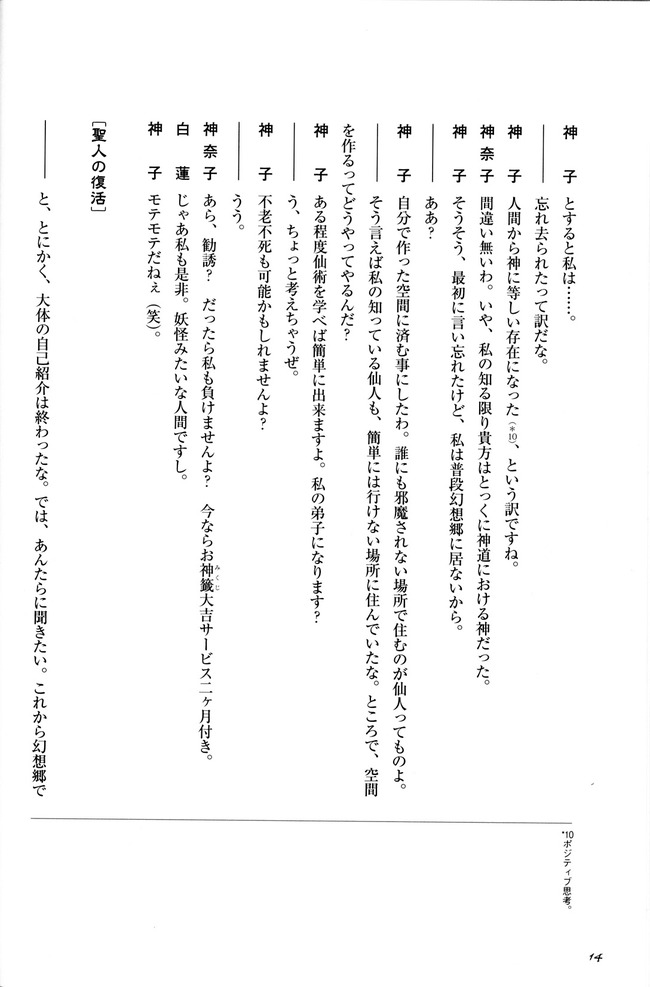 神　子　とすると私は……。
――――　忘れ去られたって訳だな。
神　子　人間から神に等しい存在になった（＊10）、という訳ですね。
神奈子　間違い無いわ。いや、私の知る限り貴方はとっくに神道における神だった。
神　子　そうそう、最初に言い忘れたけど、私は普段幻想郷に居ないから。
――――　ああ？
神　子　自分で作った空間に済む事にしたわ。誰にも邪魔されない場所で住むのが仙人ってものよ。
――――　そう言えば私の知っている仙人も、簡単には行けない場所に住んでいたな。ところで、空間
を作るってどうやってやるんだ？
神　子　ある程度仙術を学べば簡単に出来ますよ。私の弟子になります？
――――　う、ちょっと考えちゃうぜ。
神　子　不老不死も可能かもしれませんよ？
――――　うう。
神奈子　あら、勧誘？　だったら私も負けませんよ？　今ならお神籤大吉サービス二ヶ月付き。
みくじ
白　蓮　じゃあ私も是非。妖怪みたいな人間ですし。
神　子　モテモテだねぇ（笑）。
［聖人の復活］
――――　と、とにかく、大体の自己紹介は終わったな。では、あんたらに聞きたい。これから幻想郷で
*10 ポジティブ思考。
14